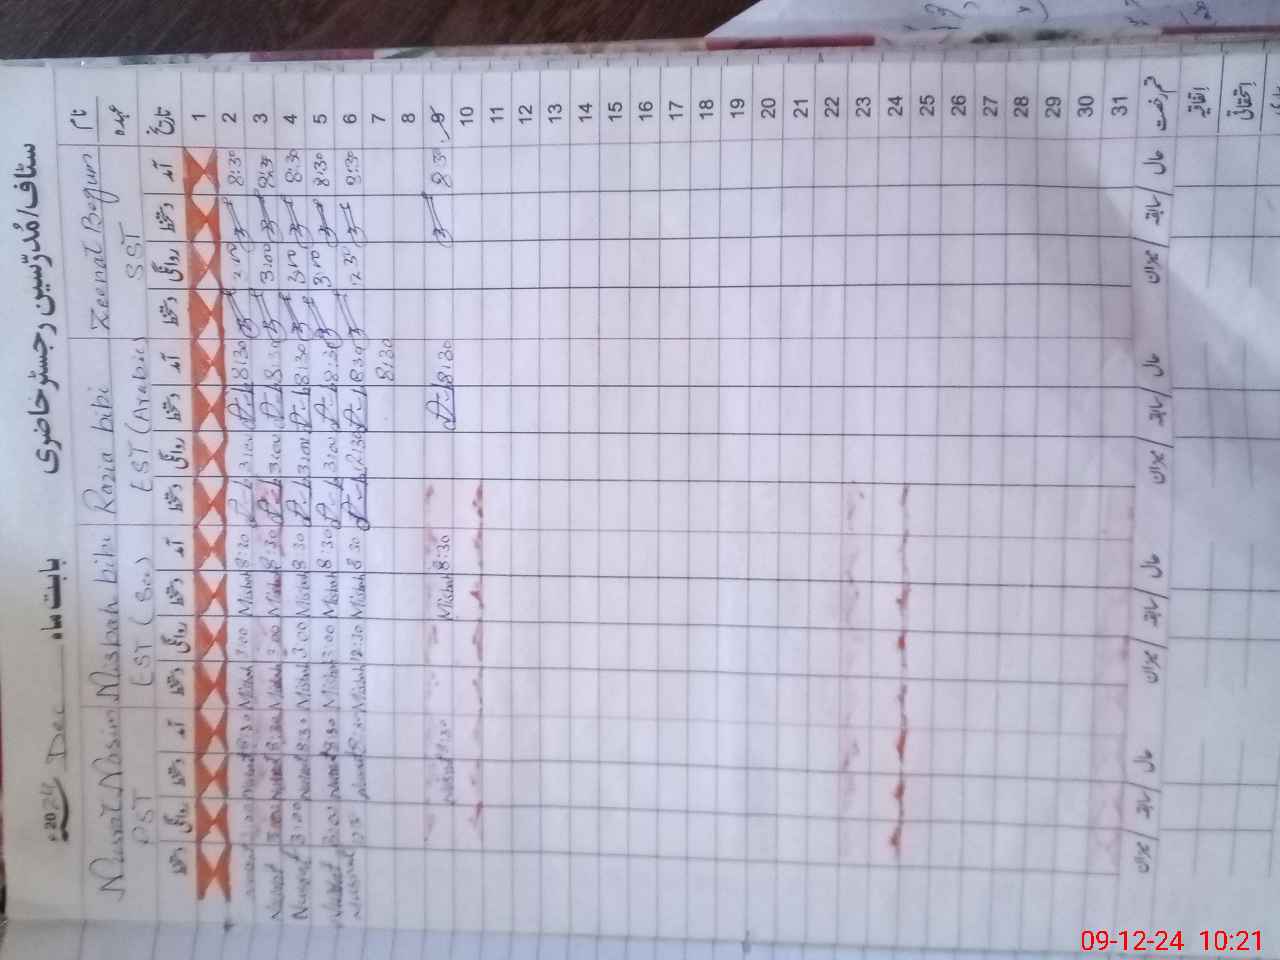 سٹاف/مُدرّسین رجسٹر حاضری
بابت ماہ Dec 2024ء
نام Zeenat Begum Razia bibi Misbah bibi Nusrat Nasim
عہدہ SST EST (Arabic) EST PST
تاریخ آمد دستخط روانگی دستخط آمد دستخط روانگی دستخط آمد دستخط روانگی دستخط آمد دستخط روانگی دستخط
1
2 8:30 3:00 8:30 3:00 8:30 Misbah 3:00 Misbah 8:30 Nusrat 3:00 Nusrat
3 8:30 3:00 8:30 3:00 8:30 Misbah 3:00 Misbah 8:30 Nusrat 3:00 Nusrat
4 8:30 3:00 8:30 3:00 8:30 Misbah 3:00 Misbah 8:30 Nusrat 3:00 Nusrat
5 8:30 3:00 8:30 3:00 8:30 Misbah 3:00 Misbah 8:30 Nusrat 3:00 Nusrat
6 8:30 12:30 8:30 12:30 8:30 Misbah 12:30 Misbah 8:30 Nusrat Nusrat
7 8:30
8
9 8:30 8:30 8:30 Misbah 8:30 Nusrat
10
11
12
13
14
15
16
17
18
19
20
21
22
23
24
25
26
27
28
29
30
31
قسم رخصت حال سابقہ میزان حال سابقہ میزان حال سابقہ میزان حال سابقہ میزان
اتفاقیہ
استحقاقی
09-12-24 10:21